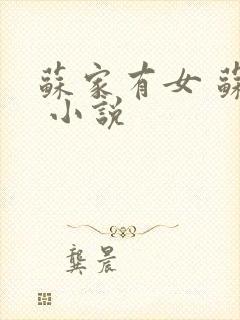 蘇家有女 蘇
小說
龔晨